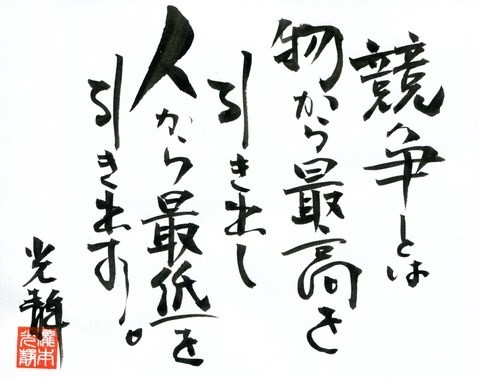 競争とは
物から最高を
引き出し
人から最低を
引き出す。
光静
瀧本
光静